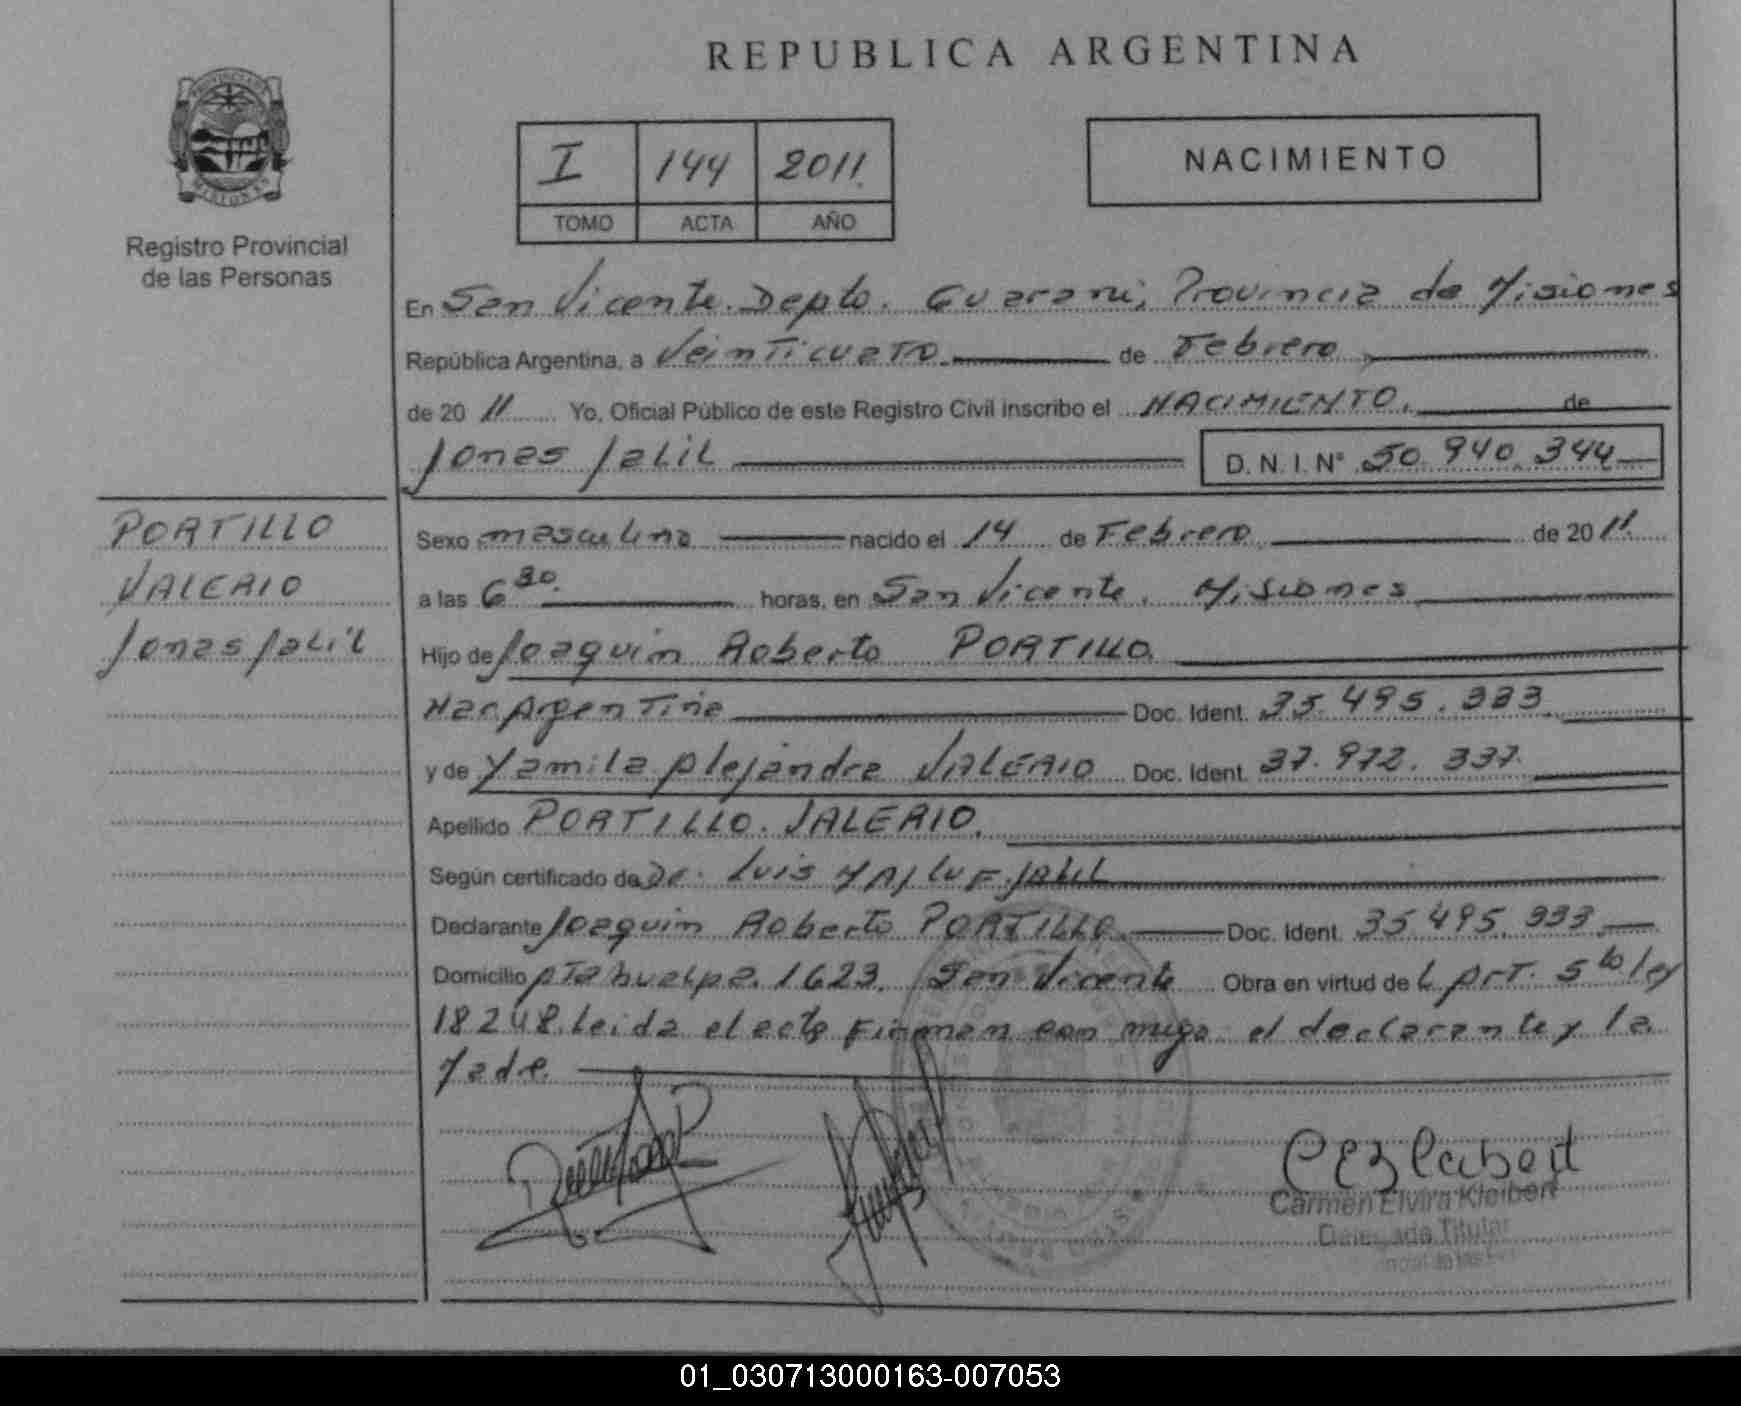 REPUBLICA ARGENTINA
PROVINCIA DE MISIONES
Registro Provincial
de las Personas
I 144 2011
TOMO ACTA AÑO
NACIMIENTO
En San Vicente. Depto. Guarani, Provincia de Misiones
República Argentina, a Veinticuatro de Febrero
de 20 11 Yo, Oficial Público de este Registro Civil inscribo el NACIMIENTO. de
Jonas Jalil D.N.I.Nº 50.940.344
PORTILLO
VALERIO
Jonas Jalil
Sexo masculino nacido el 14 de Febrero de 20 11.
a las 6 30. horas, en San Vicente. Misiones
Hijo de Joaquin Roberto PORTILLO.
Nac. Argentina Doc. Ident. 35.495.333
y de Yamila Alejandra VALERIO Doc. Ident. 37.972.337.
Apellido PORTILLO. VALERIO.
Según certificado de Dr. Luis Jalil
Declarante Joaquin Roberto PORTILLO. Doc. Ident. 35.495.333.
Domicilio Atahualpa. 1623. San Vicente Obra en virtud de L. Art. 5to ley
18248. Leida el acta Firman con migo el declarante y la
Madre.
Carmen Elvira Kleibert
Delegada Titular